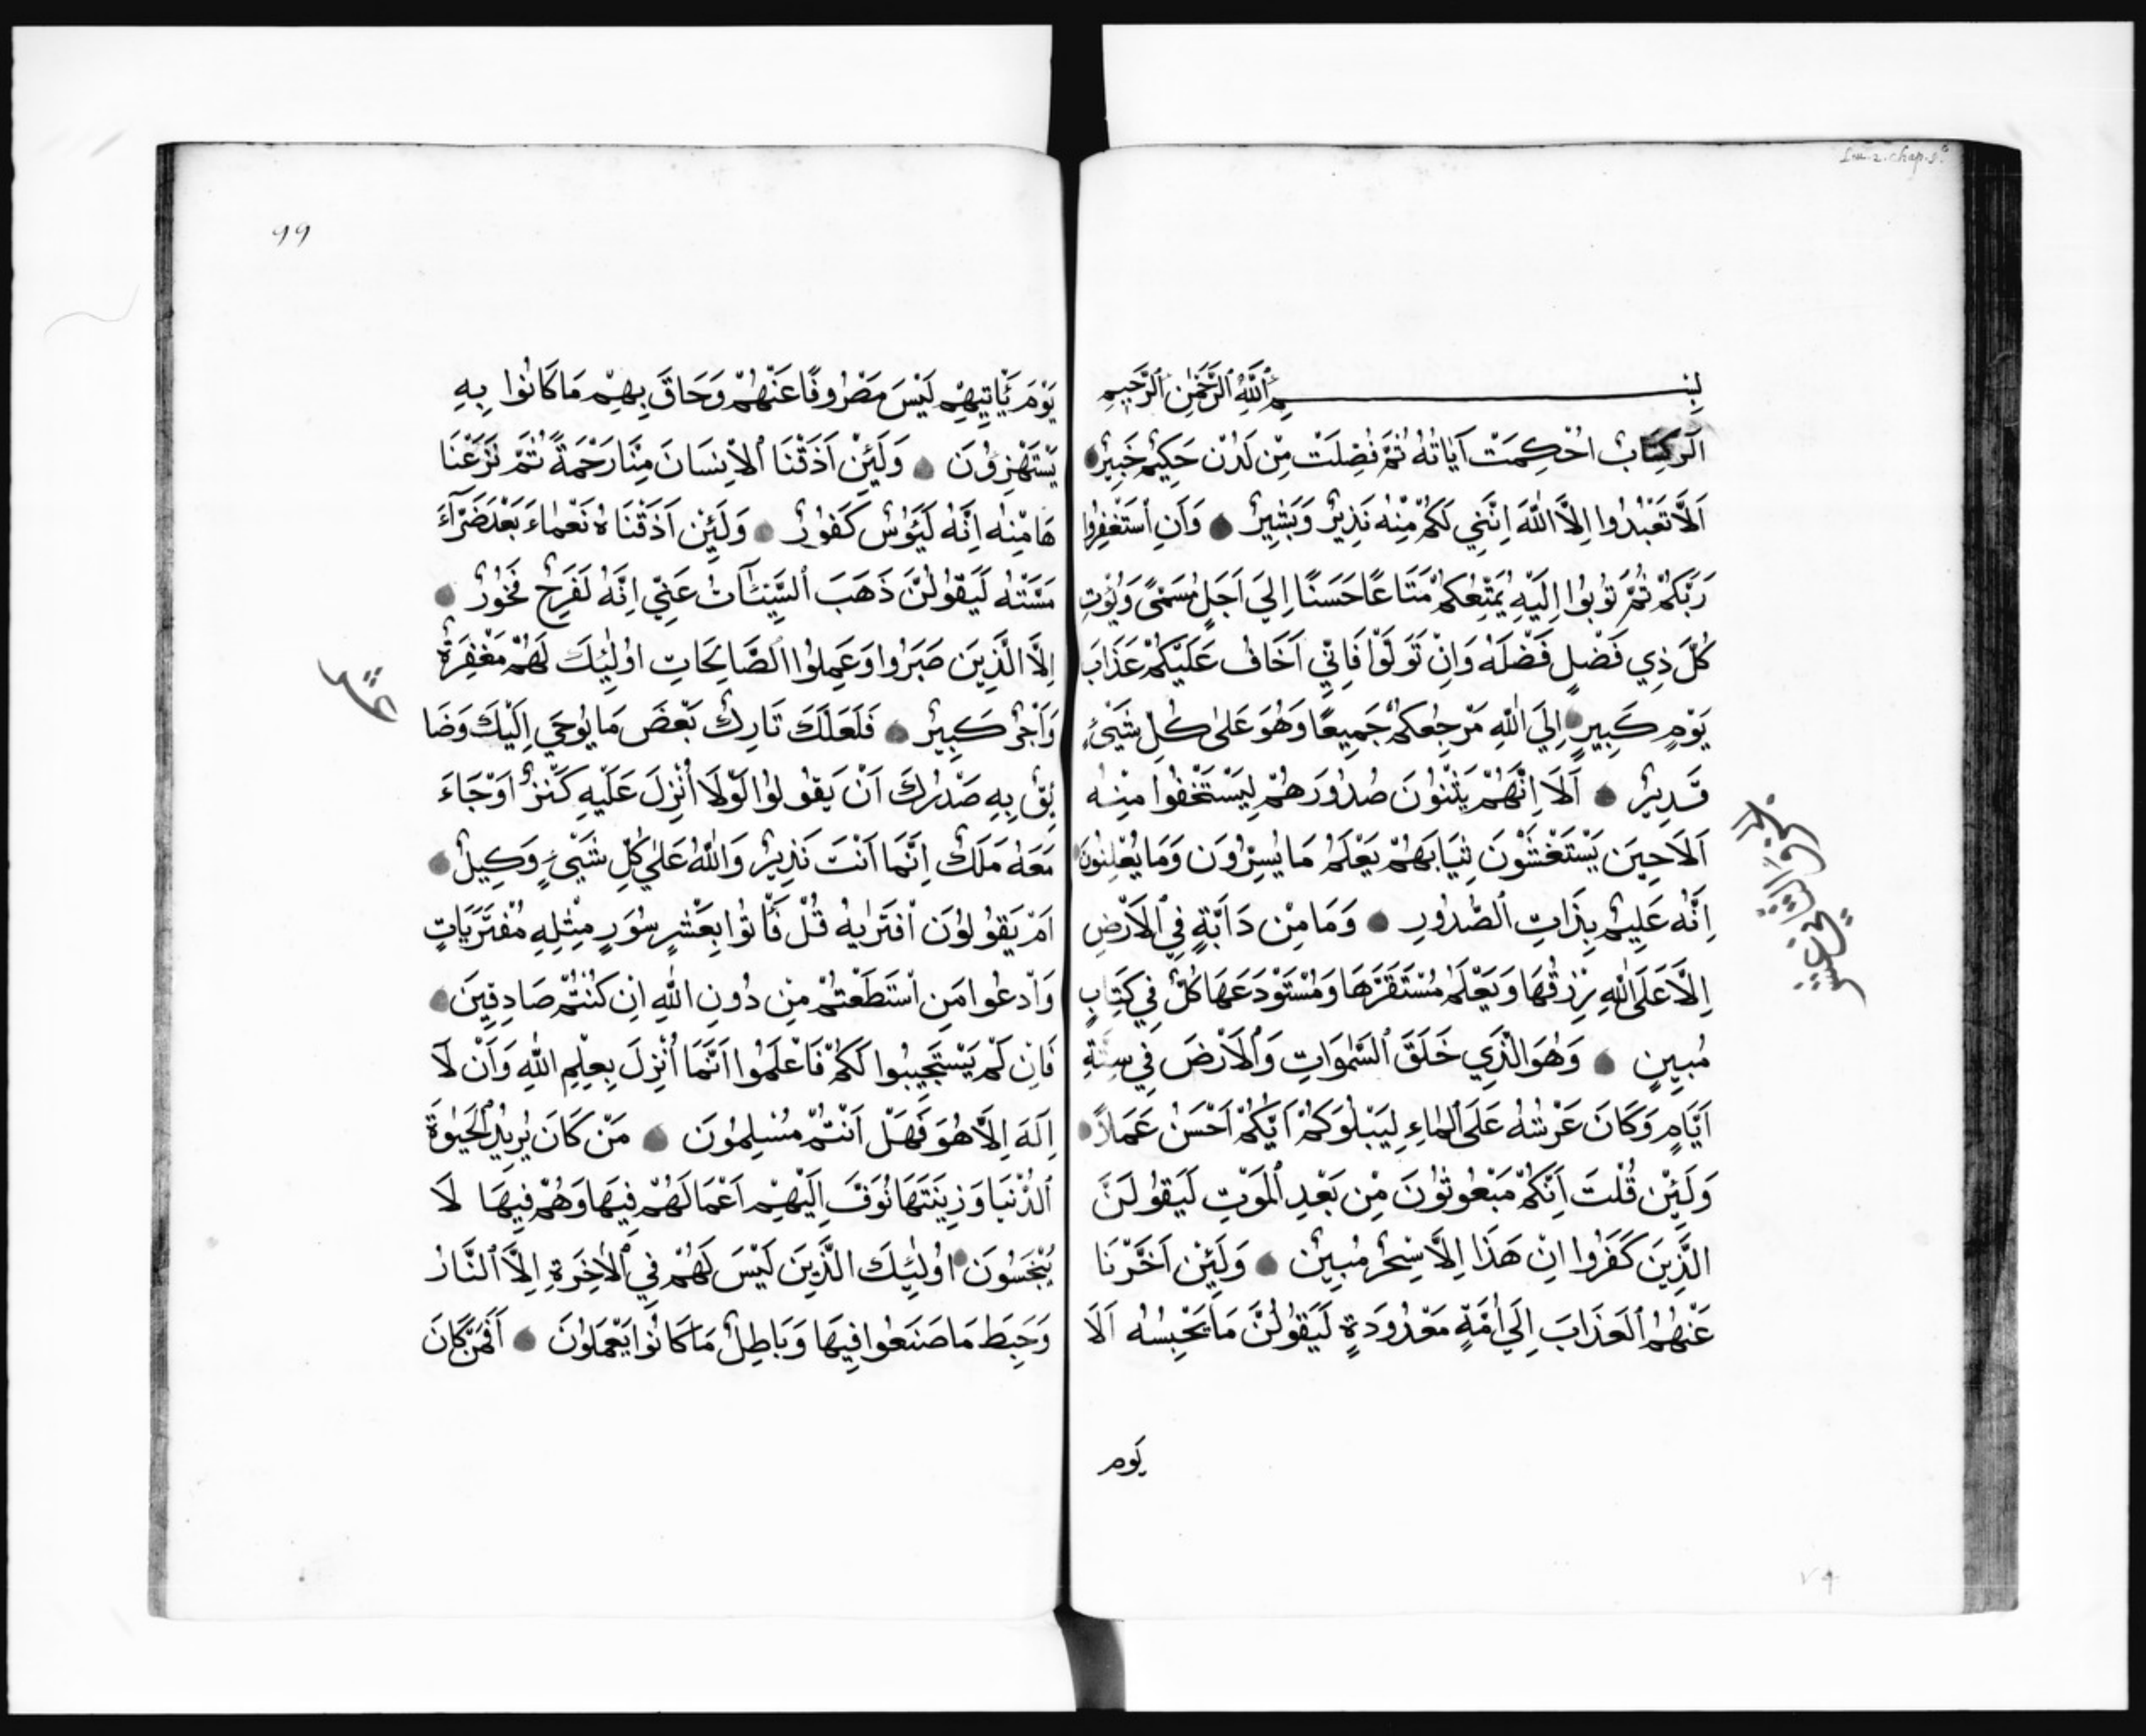 بِسْمِ ٱللَّهِ ٱلرَّحْمٰنِ ٱلرَّحِيمِ
الَر كِتَابٌ اُحْكِمَتْ آيَاتُهُ ثُمَّ فُصِّلَتْ مِنْ لَدُنْ حَكِيمٍ خَبِيرٍ
اَلَّا تَعْبُدُوا اِلَّا اللّٰهَ اِنَّنِي لَكُمْ مِنْهُ نَذِيرٌ وَبَشِيرٌ وَاَنِ ٱسْتَغْفِرُوا
رَبَّكُمْ ثُمَّ تُوبُوا اِلَيْهِ يُمَتِّعْكُمْ مَتَاعًا حَسَنًا اِلَي اَجَلٍ مُسَمًّى وَيُؤْتِ
كُلَّ ذِي فَضْلٍ فَضْلَهُ وَاِنْ تَوَلَّوْا فَاِنِّي اَخَافُ عَلَيْكُمْ عَذَابَ
يَوْمٍ كَبِيرٍ اِلَي اللّٰهِ مَرْجِعُكُمْ جَمِيعًا وَهُوَ عَلٰى كُلِّ شَيْءٍ
قَدِيرٌ اَلَا اِنَّهُمْ يَثْنُونَ صُدُورَهُمْ لِيَسْتَخْفُوا مِنْهُ
اَلَا حِينَ يَسْتَغْشُونَ ثِيَابَهُمْ يَعْلَمُ مَا يُسِرُّونَ وَمَا يُعْلِنُونَ
اِنَّهُ عَلِيمٌ بِذَاتِ ٱلصُّدُورِ وَمَا مِنْ دَآبَّةٍ فِي ٱلْاَرْضِ
اِلَّا عَلَى اللّٰهِ رِزْقُهَا وَيَعْلَمُ مُسْتَقَرَّهَا وَمُسْتَوْدَعَهَا كُلٌّ فِي كِتَابٍ
مُبِينٍ وَهُوَ الَّذِي خَلَقَ ٱلسَّمٰوَاتِ وَٱلْاَرْضَ فِي سِتَّةِ
اَيَّامٍ وَكَانَ عَرْشُهُ عَلَى ٱلْمَاءِ لِيَبْلُوَكُمْ اَيُّكُمْ اَحْسَنُ عَمَلاً
وَلَئِنْ قُلْتَ اِنَّكُمْ مَبْعُوثُونَ مِنْ بَعْدِ ٱلْمَوْتِ لَيَقُولَنَّ
الَّذِينَ كَفَرُوا اِنْ هَذَا اِلَّا سِحْرٌ مُبِينٌ وَلَئِنْ اَخَّرْنَا
عَنْهُمُ ٱلْعَذَابَ اِلَي اُمَّةٍ مَعْدُودَةٍ لَيَقُولُنَّ مَا يَحْبِسُهُ اَلَا
يَوم
٧٤
99
يَوْمَ يَأْتِيهِمْ لَيْسَ مَصْرُوفًا عَنْهُمْ وَحَاقَ بِهِمْ مَا كَانُوا بِهِ
يَسْتَهْزِؤُنَ وَلَئِنْ اَذَقْنَا ٱلْاِنْسَانَ مِنَّا رَحْمَةً ثُمَّ نَزَعْنَا
هَا مِنْهُ اِنَّهُ لَيَؤُسٌ كَفُورٌ وَلَئِنْ اَذَقْنَاهُ نَعْمَاءَ بَعْدَ ضَرَّآءَ
مَسَّتْهُ لَيَقُولُنَّ ذَهَبَ ٱلسَّيِّئَآتُ عَنِّي اِنَّهُ لَفَرِحٌ فَخُورٌ
اِلَّا الَّذِينَ صَبَرُوا وَعَمِلُوا ٱلصَّالِحَاتِ اُولٰئِكَ لَهُمْ مَغْفِرَةٌ
وَاَجْرٌ كَبِيرٌ فَلَعَلَّكَ تَارِكٌ بَعْضَ مَا يُوحَي اِلَيْكَ وَضَا
ئِقٌ بِهِ صَدْرُكَ اَنْ يَقُولُوا لَوْلَا اُنْزِلَ عَلَيْهِ كَنْزٌ اَوْ جَاءَ
مَعَهُ مَلَكٌ اِنَّمَا اَنْتَ نَذِيرٌ وَاللّٰهُ عَلٰي كُلِّ شَيْءٍ وَكِيلٌ
اَمْ يَقُولُونَ ٱفْتَرٰيهُ قُلْ فَأْتُوا بِعَشْرِ سُوَرٍ مِثْلِهِ مُفْتَرَيَاتٍ
وَٱدْعُوا مَنِ ٱسْتَطَعْتُمْ مِنْ دُونِ اللّٰهِ اِنْ كُنْتُمْ صَادِقِينَ
فَاِنْ لَمْ يَسْتَجِيبُوا لَكُمْ فَاعْلَمُوا اَنَّمَا اُنْزِلَ بِعِلْمِ اللّٰهِ وَاَنْ لَآ
اِلَهَ اِلَّا هُوَ فَهَلْ اَنْتُمْ مُسْلِمُونَ مَنْ كَانَ يُرِيدُ ٱلْحَيٰوةَ
ٱلدُّنْيَا وَزِينَتَهَا نُوَفِّ اِلَيْهِمْ اَعْمَالَهُمْ فِيهَا وَهُمْ فِيهَا لَا
يُبْخَسُونَ اُولٰئِكَ الَّذِينَ لَيْسَ لَهُمْ فِي ٱلْاٰخِرَةِ اِلَّا ٱلنَّارُ
وَحَبِطَ مَا صَنَعُوا فِيهَا وَبَاطِلٌ مَا كَانُوا يَعْمَلُونَ اَفَمَنْ كَانَ